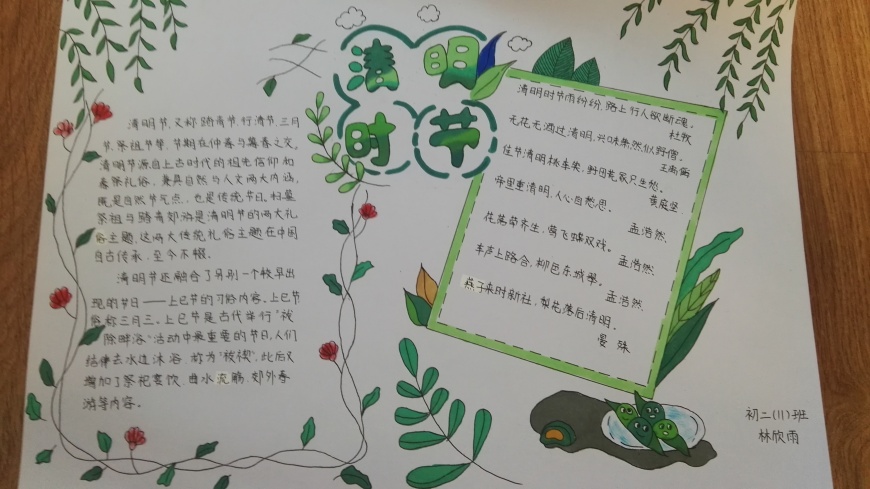 清明
时节
清明节,又称踏青节、行清节、三月
节、祭祖节等,节期在仲春与暮春之交。
清明节源自上古时代的祖先信仰和
春祭礼俗,兼具自然与人文两大内涵,
既是自然节气点,也是传统节日,扫墓
祭祖与踏青郊游是清明节的两大礼
俗主题,这两大传统礼俗主题在中国
自古传承,至今不辍。
清明节还融合了另别一个较早出
现的节日——上巳节的习俗内容。上巳节
俗称三月三,上巳节是古代举行“祓
除畔浴”活动中最重要的节日,人们
结伴去水边沐浴,称为“祓禊”,此后又
增加了祭祀宴饮、曲水流觞、郊外春
游等内容。
清明时节雨纷纷,路上行人欲断魂。
杜牧
无花无酒过清明,兴味萧然似野僧。
王禹偁
佳节清明桃李笑,野田荒冢只生愁。
黄庭坚
帝里重清明,人心自愁思。
孟浩然
花落草齐生,莺飞蝶双戏。
孟浩然
车声上路合,柳色东城翠。
孟浩然
燕子来时新社,梨花落后清明。
晏殊
初二(11)班
林欣雨